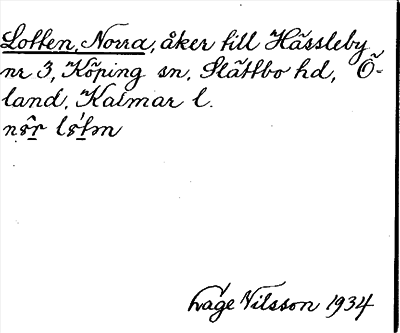 Lotten, Norra, åker till Hässleby
nr 3, Köping sn, Slättbo hd, Ö-
land, Kalmar l.
Låge Nilsson 1934